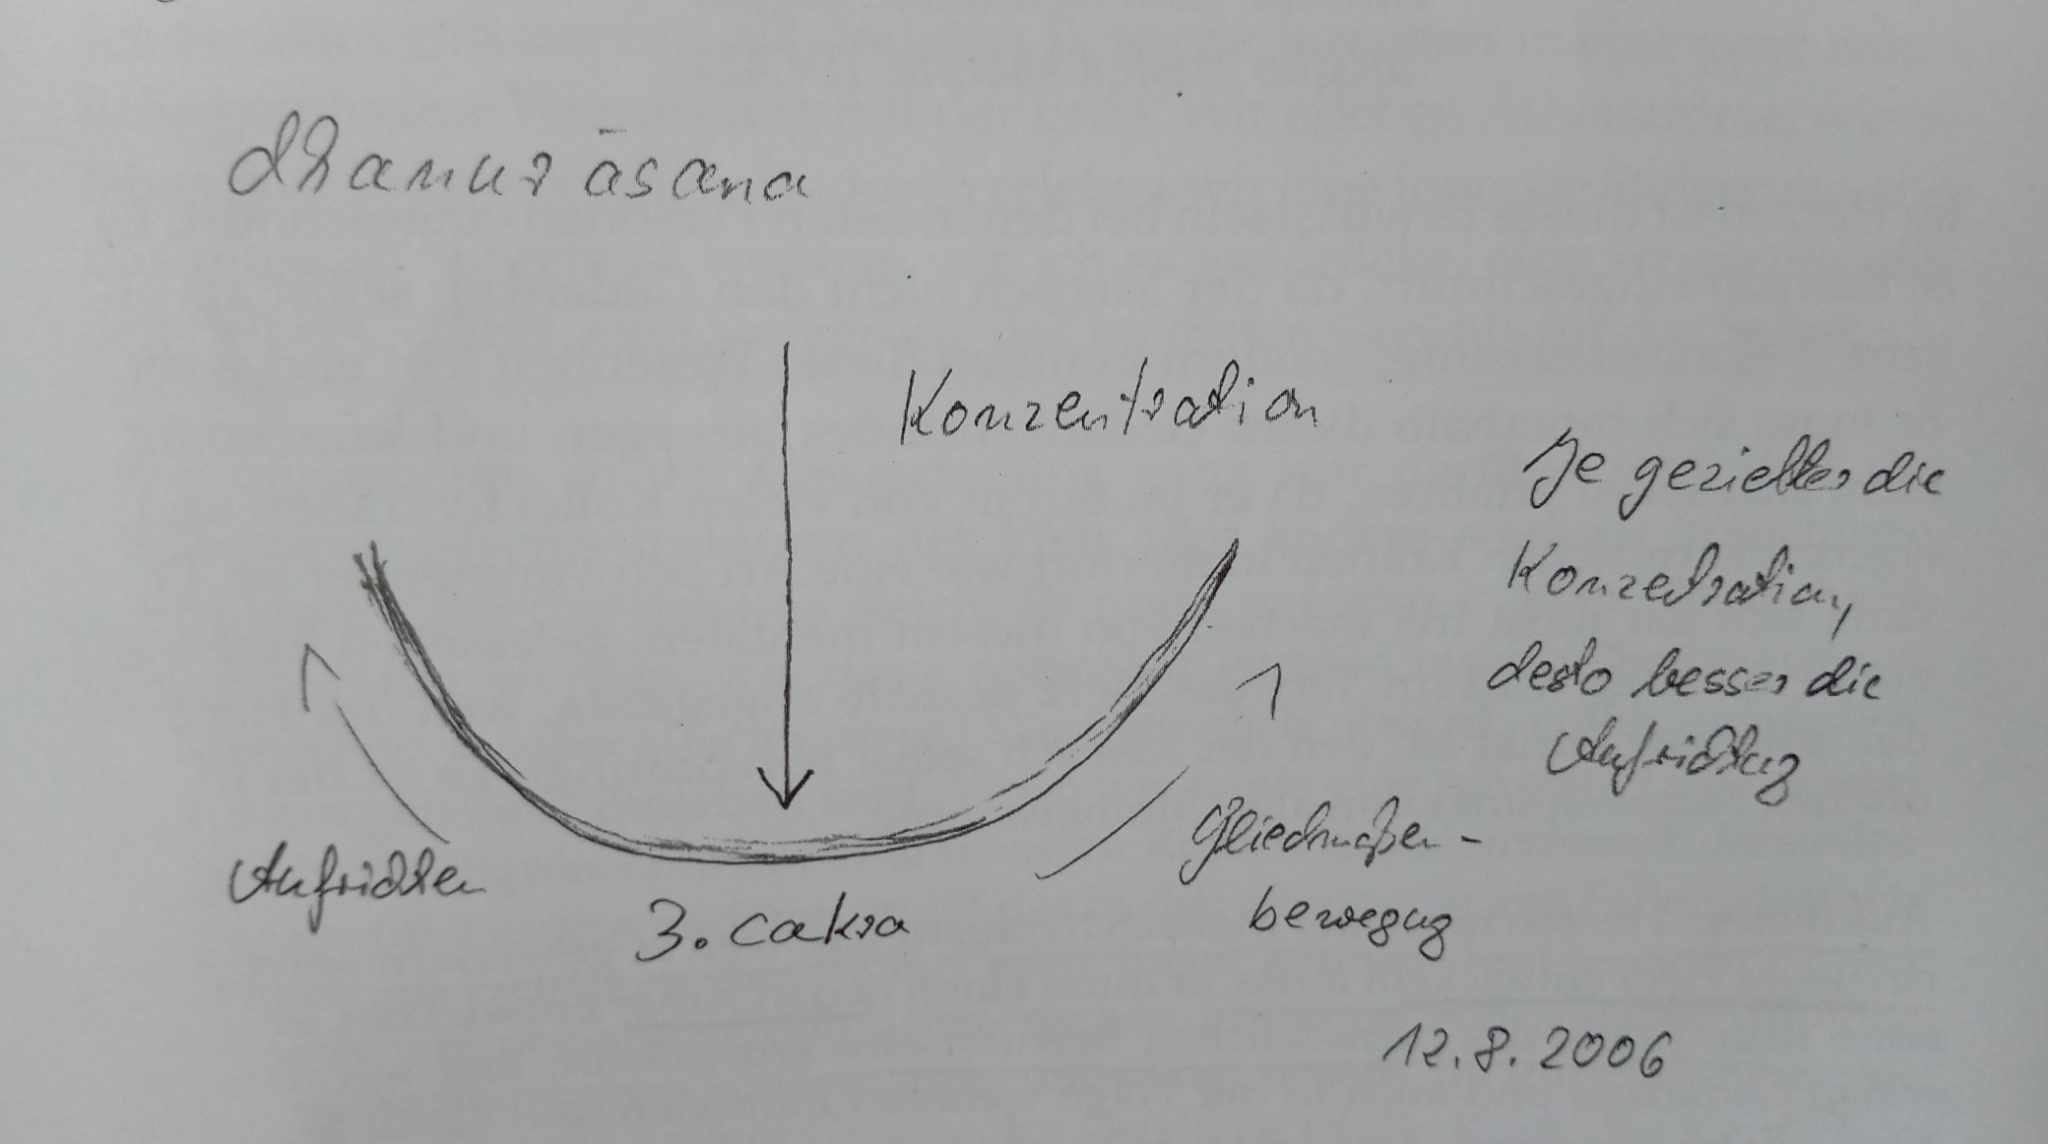 dhanur āsana
Konzentration
Je gezielter die
Konzetration,
desto besser die
Aufrichtug
Aufrichten
3. cakra
Gliedmaßen-
bewegug
12.8.2006